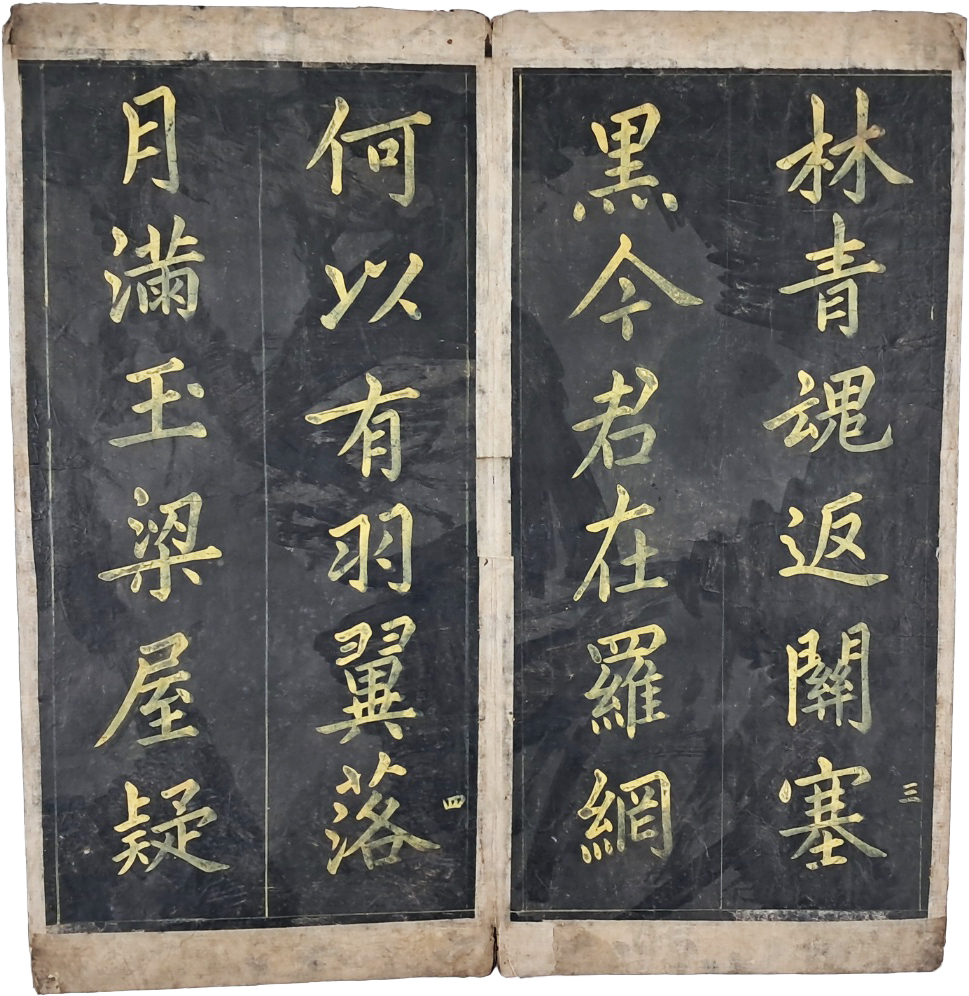 林青魂返關塞
三
黑今君在羅網
何以有羽翼落
四
月滿玉梁屋疑